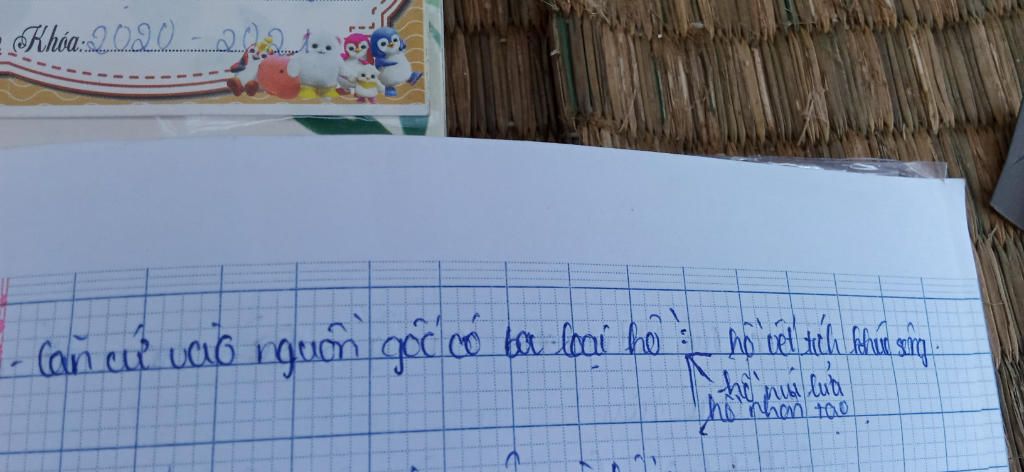 Khóa: 2020 - 2021
- Căn cứ vào nguồn gốc có ba loại hồ : hồ vết tích khúc sông.
hồ núi lửa
hồ nhân tạo